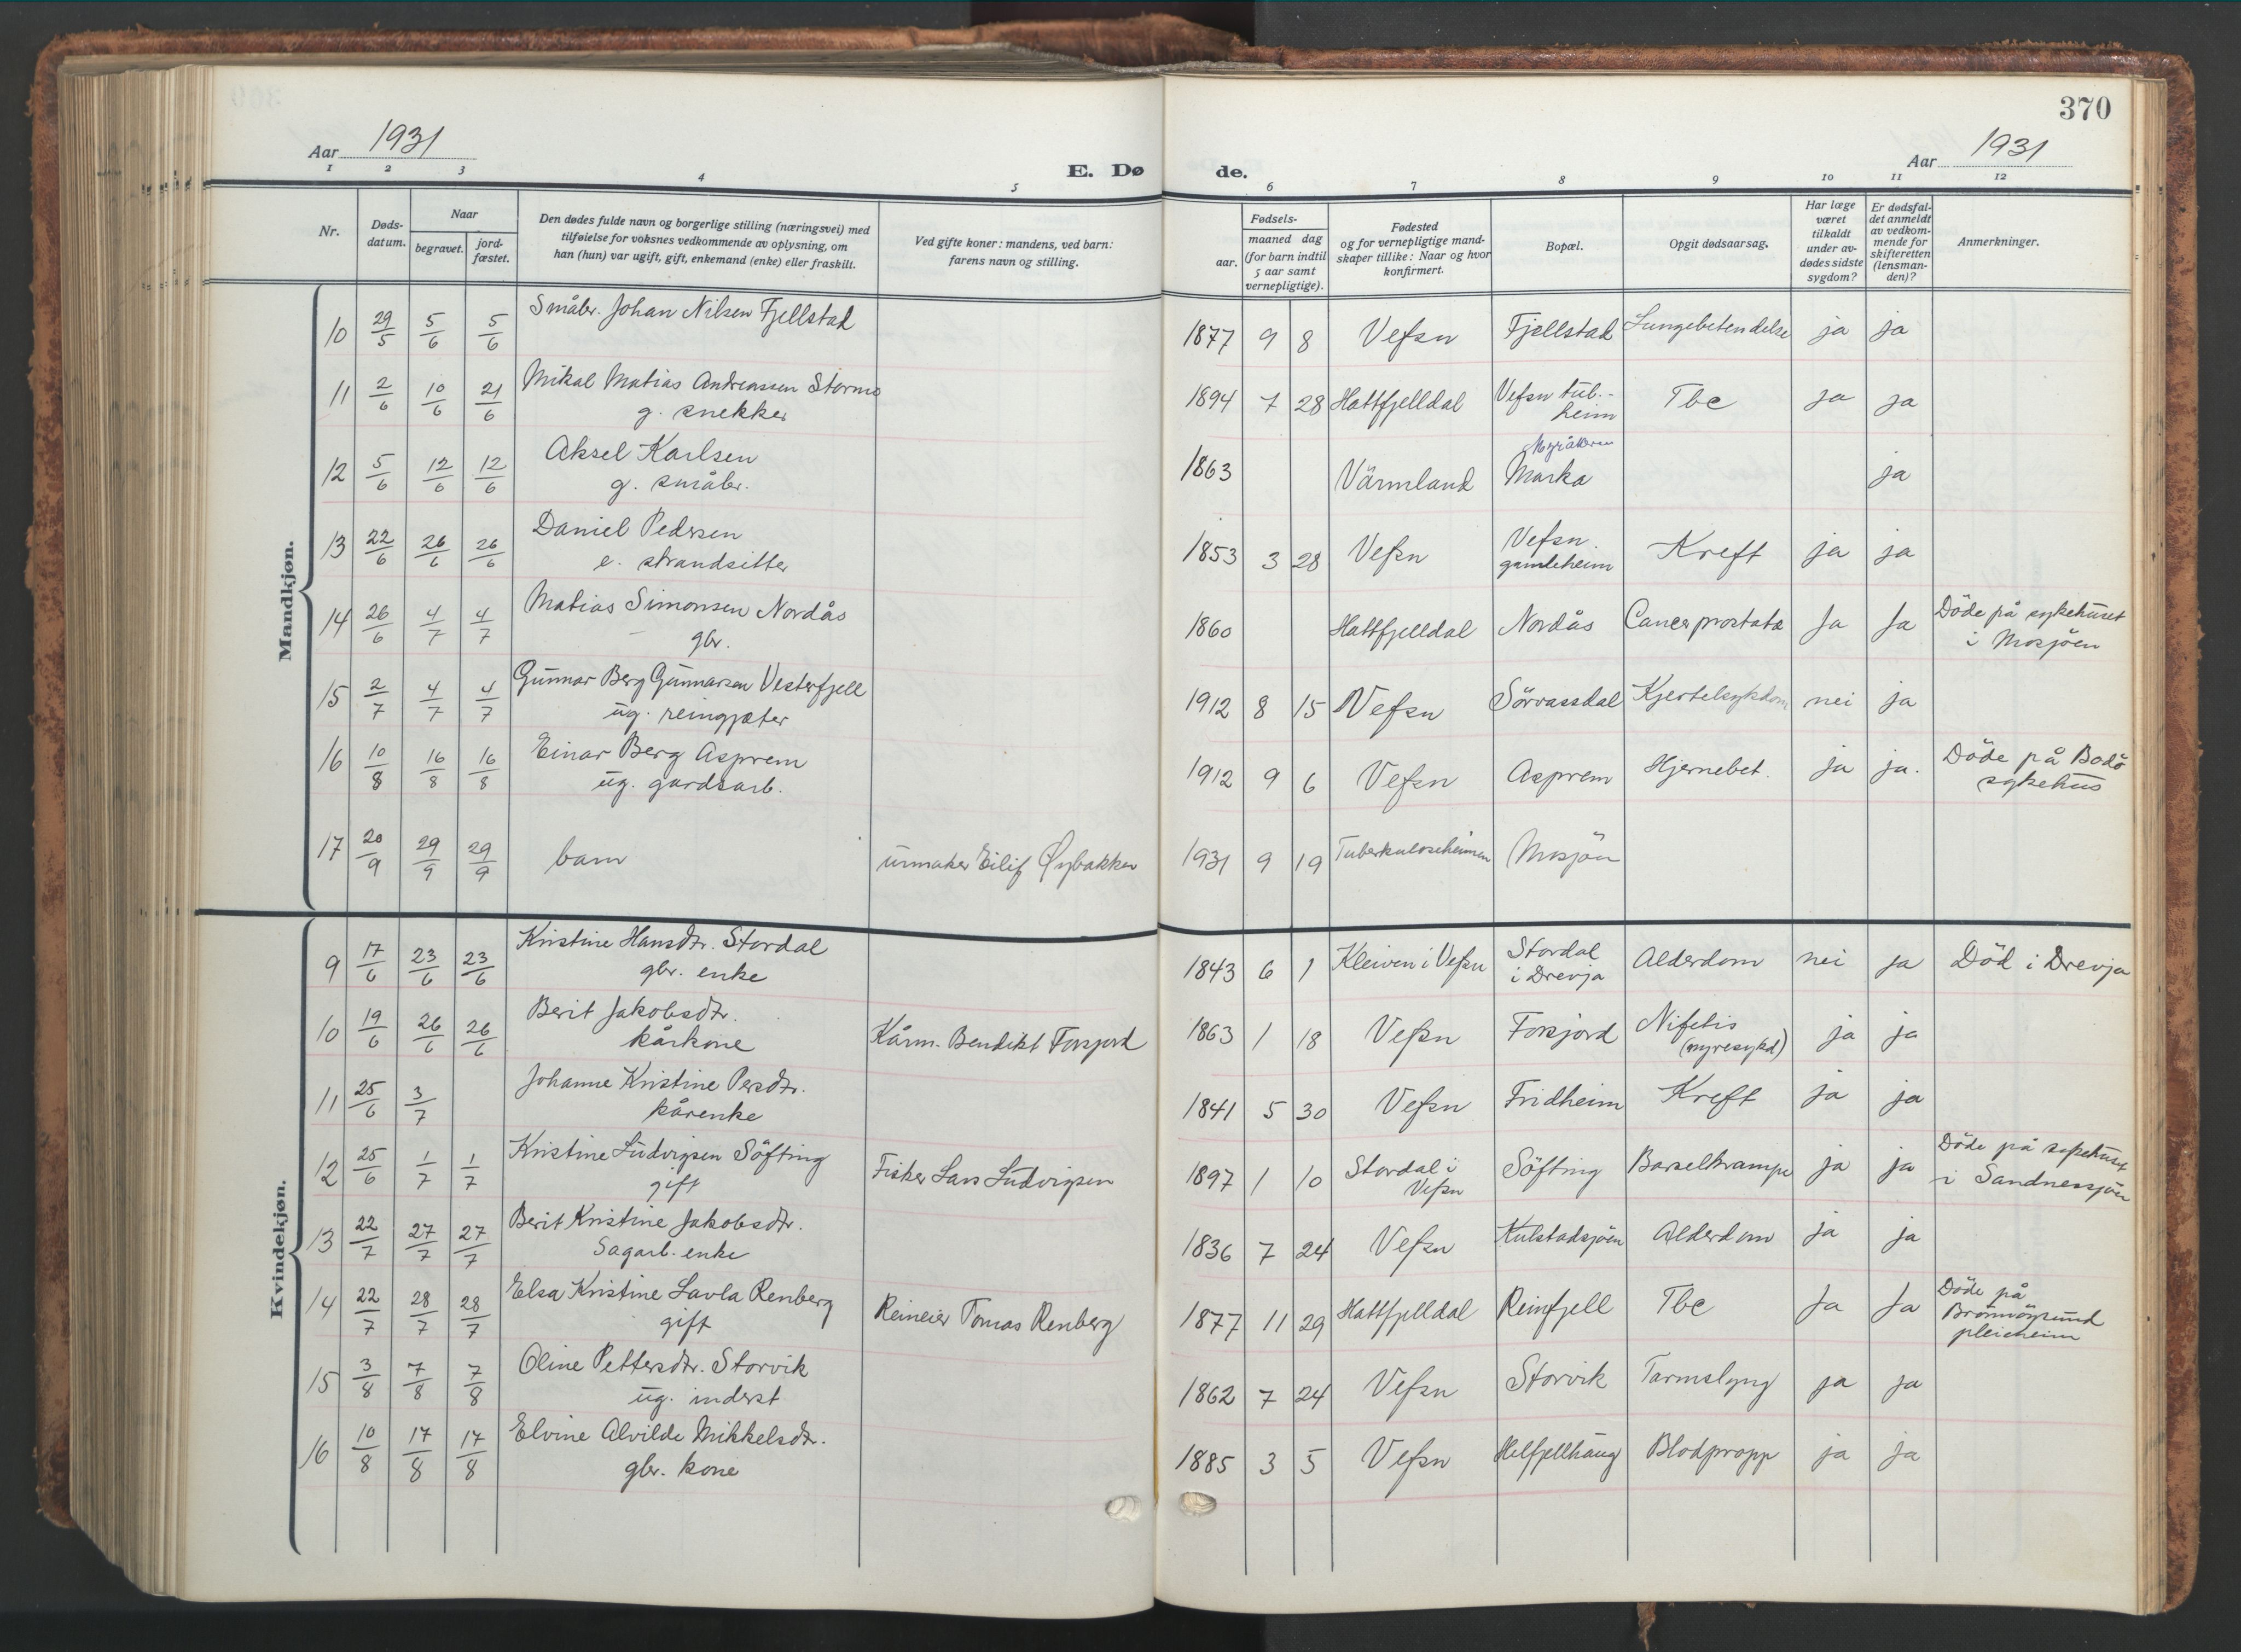 370
Aar 1931
E. Dø de.
Aar 1931
1 2 3 4 5 6 7 8 9 10 11 12
Nr.
Døds-datum.
Naar
begravet.
jord-fæstet.
Den dødes fulde navn og borgerlige stilling (næringsvei) med
tilføielse for voksnes vedkommende av oplysning, om
han (hun) var ugift, gift, enkemand (enke) eller fraskilt.
Ved gifte koner: mandens, ved barn:
farens navn og stilling.
Fødsels-
aar. maaned dag
(for barn indtil
5 aar samt
vernepligtige).
Fødested
og for vernepligtige mand-
skaper tillike: Naar og hvor
konfirmert.
Bopæl.
Opgit dødsaarsag.
Har læge
været
tilkaldt
under av-
dødes sidste
sygdom?
Er dødsfal-
det anmeldt
av vedkom-
mende for
skifteretten
(lensman-
den)?
Anmerkninger.
Mandkjøn.
10 29/5 5/6 5/6 Småbr. Johan Nilsen Fjellstad 1877 9 8 Vefsn Fjellstad Lungebetendelse ja ja
11 2/6 10/6 21/6 Mikal Matias Andreassen Stormo
g. snekker 1894 7 28 Hattfjelldal Vefsn tub.-
heim Tbc ja ja
12 5/6 12/6 12/6 Aksel Karlsen
g. småbr. 1863 Värmland Marka ja
13 22/6 26/6 26/6 Daniel Pedersen
e. strandsitter 1853 3 28 Vefsn Vefsn
gamleheim Kreft ja ja
14 26/6 4/7 4/7 Matias Simonsen Nordås
gbr. 1860 Hattfjelldal Nordås Cancer prostata Ja Ja Döde på sykehuset
i Mosjöen
15 2/7 4/7 4/7 Gunnar Berg Gunnarsen Vesterfjell
ug. reingjæter 1912 8 15 Vefsn Sörvassdal Kjertelsykdom nei ja
16 10/8 16/8 16/8 Einar Berg Asprem
ug. gardsarb. 1912 9 6 Vefsn Asprem Hjernebet. ja ja. Döde på Bodö
sykehus
17 20/9 29/9 29/9 barn urmaker Eilif Øybakken 1931 9 19 Tuberkuloseheimen Mosjöen
Kvindekjøn.
9 17/6 23/6 23/6 Kristine Hansdtr. Stordal
gbr. enke 1843 6 1 Kleiven i Vefsn Stordal
i Drevja Alderdom nei ja Död i Drevja
10 19/6 26/6 26/6 Berit Jakobsdtr.
kårkone Kårm. Bendikt Forsjord 1863 1 18 Vefsn Forsjord Nifetis
(nyresykd) ja ja
11 25/6 3/7 Johanne Kristine Persdtr.
kårenke 1841 5 30 Vefsn Fridheim Kreft ja ja
12 25/6 1/7 1/7 Kristine Ludvigsen Söfting
gift Fisker Lars Ludvigsen 1897 1 10 Stordal i
Vefsn Söfting Barselkrampe ja ja Döde på sykehuset
i Sandnessjöen
13 22/7 27/7 27/7 Berit Kristine Jakobsdtr.
Sagarb. enke 1836 7 24 Vefsn Kulstadsjöen Alderdom ja ja
14 22/7 28/7 28/7 Elsa Kristine Lavla Renberg
gift Reineier Tomas Renberg 1877 11 29 Hattfjelldal Reinfjell Tbc Ja Ja Döde på
Brönnöysund
pleieheim
15 3/8 7/8 7/8 Oline Pettersdtr. Storvik
ug. inderst 1862 7 24 Vefsn Storvik Tarmslyng ja ja
16 10/8 17/8 17/8 Elvine Alvilde Mikkelsdtr.
gbr. kone 1885 3 5 Vefsn Helfjellhaug Blodpropp ja ja